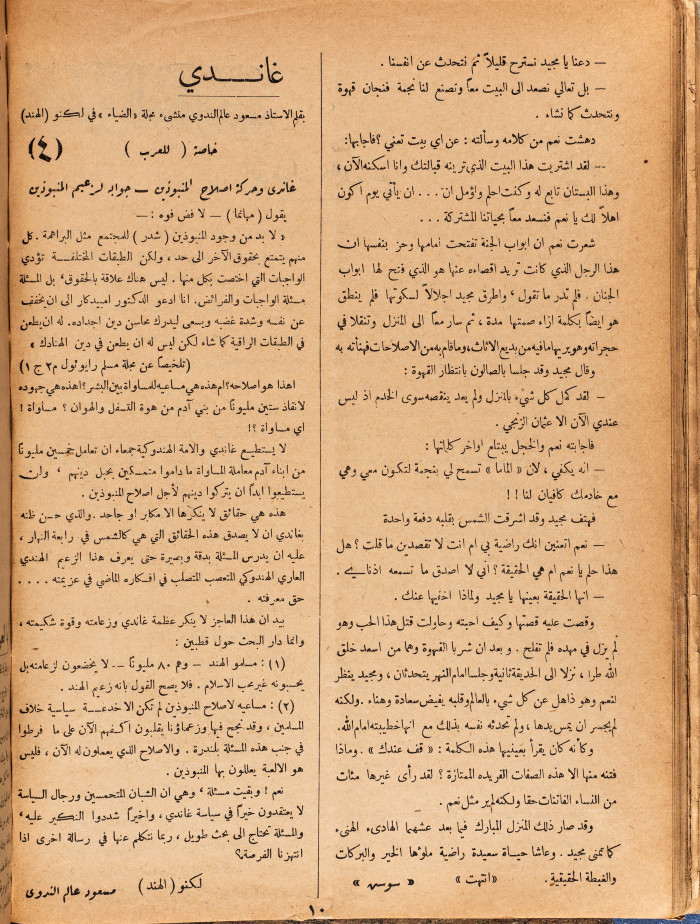 — دعنا يا مجيد نسترح قليلاً ثم نتحدث عن انفسنا .
— بل تعالي نصعد الى البيت معاً ونصنع لنا نجمة فنجان قهوة
ونتحدث كما نشاء .
دهشت نعم من كلامه وسألته : عن اي بيت تعني ؟ فاجابها:
— لقد اشتريت هذا البيت الذي ترينه قبالتك وانا اسكنه الآن ،
وهذا البستان تابع له وكنت احلم واؤمل ان . . . ان يأتي يوم اكون
اهلاً لك يا نعم فنسعد معاً بحياتنا المشتركة . . .
شعرت نعم ان ابواب الجنة تفتحت امامها وحز بنفسها ان
هذا الرجل الذي كانت تريد اقصاءه عنها هو الذي فتح لها ابواب
الجنان . فلم تدر ما تقول ، واطرق مجيد اجلالاً لسكوتها فلم ينطق
هو ايضاً بكلمة ازاء صمتها مدة ، ثم سار معاً الى المنزل وتنقلا في
حجراته وهو يريها ما فيه من بديع الاثاث، وما قام به من الاصلاحات فهنأته به
وقال مجيد وقد جلسا بالصالون بانتظار القهوة :
— لقد كمل كل شيء بالمنزل ولم يعد ينقصه سوى الخدم اذ ليس
عندي الآن الا عثمان الزنجي .
فاجابته نعم والخجل يبتلع اواخر كلماتها :
— انه يكفي ، لان « الماما » تسمح لي بنجمة لتكون معي وهي
مع خادمك كافيان لنا ! ! !
فهتف مجيد وقد اشرقت الشمس بقلبه دفعة واحدة
— نعم اتعنين انك راضية بي ام انت لا تقصدين ما قلت ؟ هل
هذا حلم يا نعم ام هي الحقيقة ؟ اني لا اصدق ما تسمعه اذنايي .
— انها الحقيقة بعينها يا مجيد ولماذا اخفيها عنك .
وقصت عليه قصتها وكيف احبته وحاولت قتل هذا الحب وهو
لم يزل في مهده فلم تفلح . وبعد ان شربا القهوة وهما من اسعد خلق
الله طرا ، نزلا الى الحديقة ثانية وجلسا امام النهر يتحدثان ، ومجيد ينظر
لنعم وهو ذاهل عن كل شيء بالعالم وقلبه يفيض سعادة وهناء . ولكنه
لم يجسر ان يمس يدها ، ولم تحدثه نفسه بذلك مع انها خطيبته امام الله.
وكأنه كان يقرأ بعينيها هذه الكلمة : « قف عندك » . وماذا
فتنه منها الا هذه الصفات الفريده الممتازة ؟ لقد رأى غيرها مئات
من النساء الفاتنات حقا ولكنه لم ير مثل نعم .
وقد صار ذلك المنزل المبارك فيما بعد عشهما الهادىء الهنىء
كما تمنى مجيد . وعاشا حياة سعيدة راضية ملؤها الخير والبركات
والغبطة الحقيقية . « انتهت » « سوسن »
غانـــدي
بقلم الاستاذ مسعود عالم الندوي منشىء مجلة «الضياء» في لكنو (الهند)
خاصة ( للعرب ) (٤)
غاندى وحركة اصلاح المنبوذين — جوابه لزعيم المنبوذين
يقول ( مهاتما ) — لا فض فوه : —
« لا بد من وجود المنبوذين ( شدر ) للمجتمع مثل البراهمة . كل
منهم يتمتع بحقوق الآخر الى حد ، ولكن الطبقات المختلفة تؤدي
الواجبات التي اختصت بكل منها . ليس هناك علاقة بالحقوق، بل المسئلة
مسئلة الواجبات والفرائض . انا ادعو الدكتور امبيدكار الى ان يخفف
عن نفسه وشدة غضبه ويسعى ليدرك محاسن دين اجداده. له ان يطعن
في الطبقات الراقية كما شاء لكن ليس له ان يطعن في دين الهنادك »
(تلخيصاً عن مجلة مسلم رايوئول م ٢ ج ١)
اهذا هو اصلاحه؟ ام هذه هي مساعيه للمساواة بين البشر؟ اهذه هي جهوده
لانقاذ ستين مليونًا من بني آدم من هوة التسفل والهوان ؟ مساواة !
اي مساواة ؟!
لا يستطيع غاندي والامة الهندوكية جمعاء ان تعامل خمسين مليونًا
من ابناء آدم معاملة المساواة ما داموا متمسكين بحبل دينهم ، ولن
يستطيعوا ابداً ان يتركوا دينهم لأجل اصلاح المنبوذين .
هذه هي حقائق لا ينكرها الا مكابر او جاحد . والذي حسن ظنه
بغاندي ان لا يصدق هذه الحقائق التي هي كالشمس في رابعة النهار ،
عليه ان يدرس المسئلة بدقة وبصيرة حتى يعرف هذا الزعيم الهندي
العاري الهندوكي المتعصب المتصلب في افكاره الماضي في عزيمته . . . .
حق معرفته .
بيد ان هذا العاجز لا ينكر عظمة غاندي وزعامته وقوة شكيمته ،
وانما دار البحث حول قطبين :
(١) : مسلمو الهند — وهم ٨٠ مليونًا — لا يخضعون لزعامته بل
يحسبونه غير محب الاسلام . فلا يصح القول بانه زعيم الهند .
(٢) : مساعيه لاصلاح المنبوذين لم تكن الا خدعة سياسية خلاف
المسلمين ، وقد نجح فيها وزعماؤنا يقلبون اكفهم الآن على ما فرطوا
في جنب هذه المسئلة بلندرة . والاصلاح الذي يعملون له الآن ، فليس
هو الا لعبة يعللون بها المنبوذين .
نعم ! وبقيت مسئلة ، وهي ان الشبان المتحمسين ورجال السياسة
لا يعتقدون خيراً في سياسة غاندي ، واخيراً شددوا النكير عليه،
والمسئلة تحتاج الى بحث طويل ، ربما نتكلم عنها في رسالة اخرى اذا
انتهزنا الفرصة.؟
لكنو ( الهند ) مسعود عالم الندوى
١٠